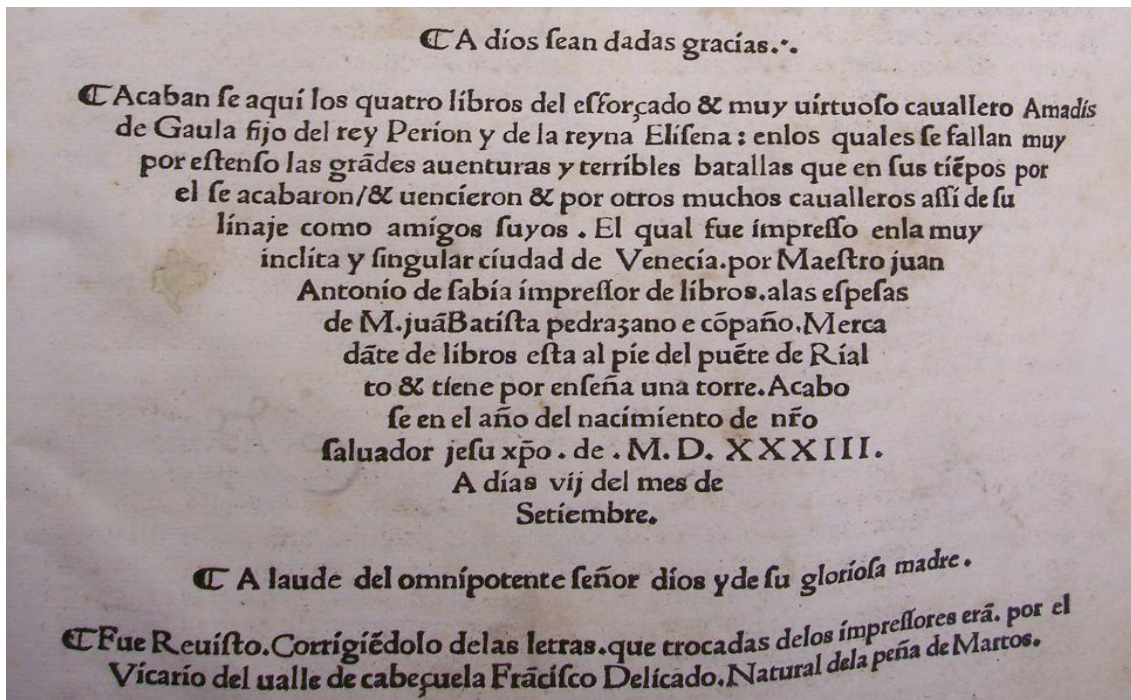 ℂA dios ſean dadas gracias.·.
ℂAcaban ſe aqui los quatro libros del eſforçado & muy uirtuoſo cauallero Amadis
de Gaula fijo del rey Perion y de la reyna Eliſena : enlos quales ſe fallan muy
por eſtenſo las grãdes auenturas y terribles batallas que en ſus tiẽpos por
el ſe acabaron/& uencieron & por otros muchos caualleros aſſi de ſu
linaje como amigos ſuyos . El qual fue impreſſo enla muy
inclita y ſingular ciudad de Venecia.por Maeſtro juan
Antonio de ſabia impreſſor de libros.alas eſpeſas
de M.juãBatiſta pedraʒano e cõpaño.Merca
dãte de libros eſta al pie del puẽte de Rial
to & tiene por enſeña una torre.Acabo
ſe en el año del nacimiento de nr̃o
ſaluador jeſu xp̃o . de . M. D. XXXIII.
A dias vij del mes de
Setiembre.
ℂ A laude del omnipotente ſeñor dios yde ſu glorioſa madre .
ℂFue Reuiſto.Corrigiẽdolo delas letras.que trocadas delos impreſſores erã. por el
Vicario del ualle de cabeçuela Frãciſco Delicado.Natural dela peña de Martos.